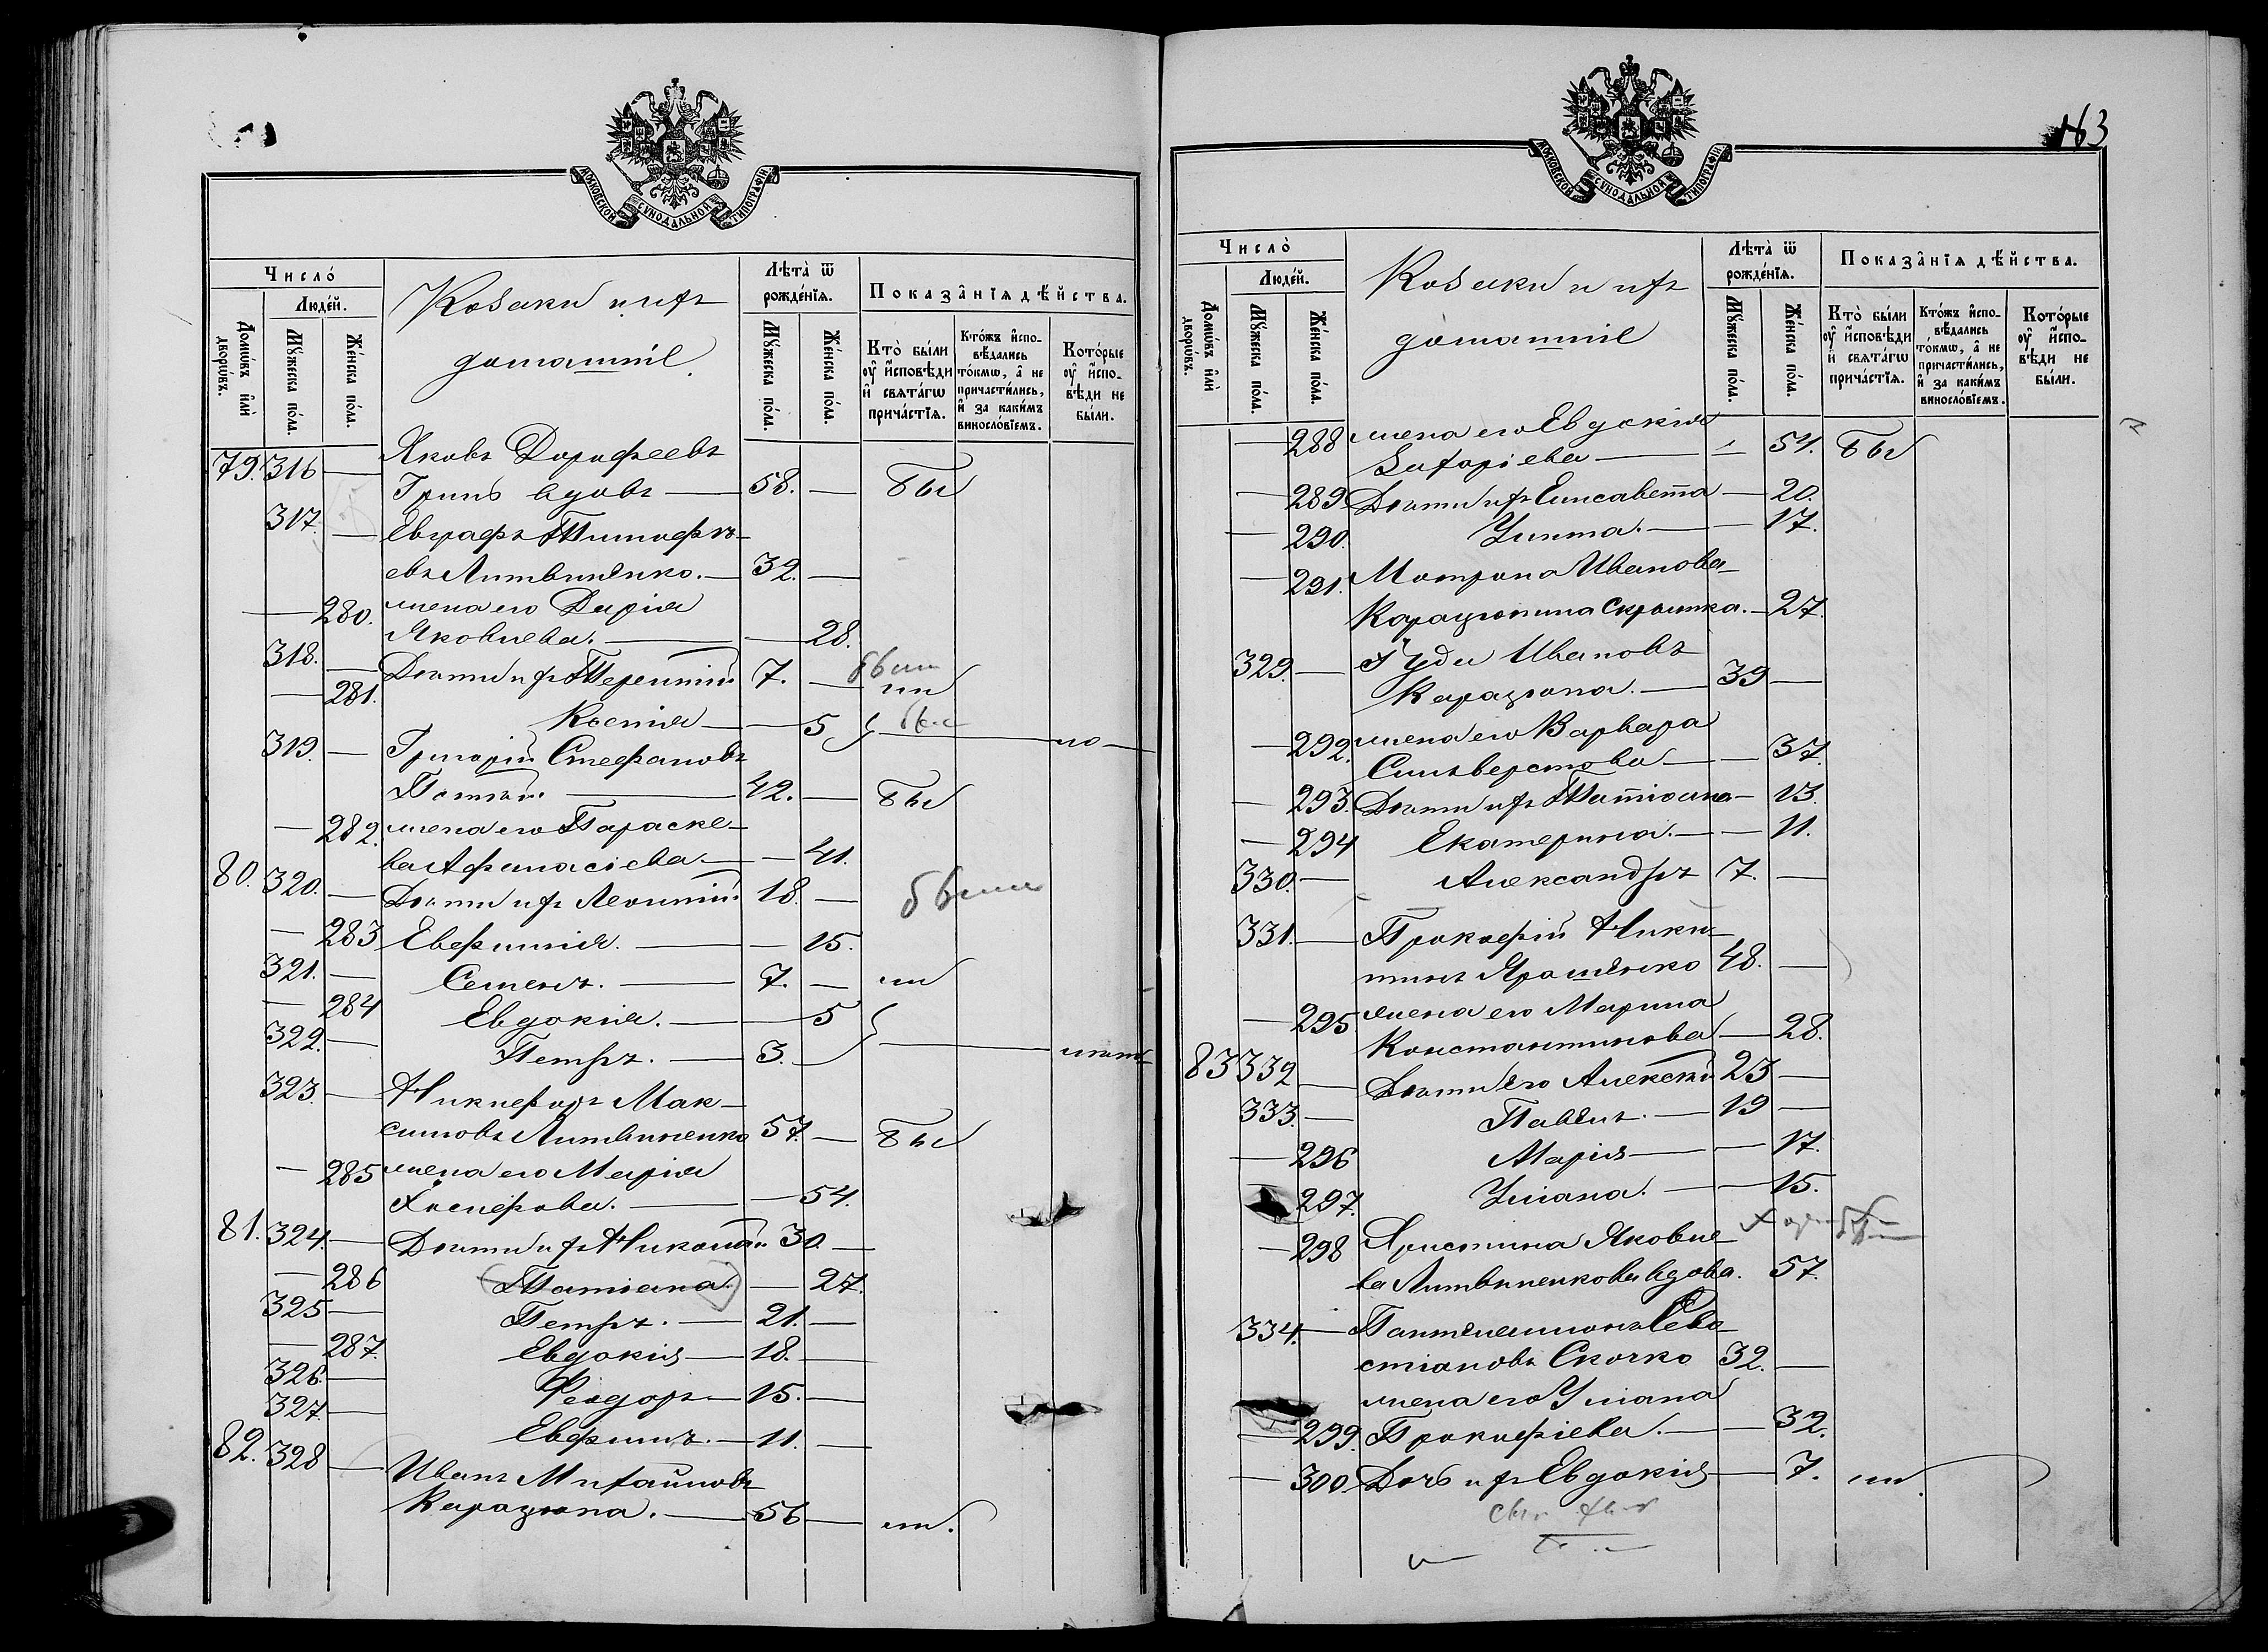 МОСКОВСКОЙ СУНОДАЛЬНОЙ ТИПОГРАФІИ
Число́
Люде́й.
Домѡ́въ и҆лѝ дворѡ́въ.
Мꙋ́жеска по́ла.
Же́нска по́ла.
Козаки и ихъ
домашніе.
Лѣ́та ѿ рожде́нїѧ.
Мꙋ́жеска по́ла.
Же́нска по́ла.
Показа̑нїѧ дѣ́йства.
Кто̀ бы́ли ᲂу҆ и҆сповѣ́ди и҆ свѧта́гѡ прича́стїѧ.
Кто́жъ и҆спо-вѣ́дались то́кмѡ, а҆ не причасти́лись, и҆ за каки́мъ винослóвїемъ.
Кото́рые ᲂу҆ и҆спо-вѣ́ди не бы́ли.
79. 316 — Яковъ Дорофеевъ
Гринь вдовъ — 58. — был
317. — Евграфъ Тимофѣ-
евъ Литвиненко. — 32. —
— 280. жена его Дарія
Яковлева. — — 28.
318. — Дѣти ихъ Терентій 7. —
— 281. Ксенія — — 5
319. — Григорій Стефановъ
42. — был
— 282. жена его Параске-
ва Афанасіева — — 41.
80. 320. — Дѣти ихъ Леонтій 18. —
— 283 Евфимія. — — 15.
321. — Семенъ. — 7. —
— 284 Евдокія. — — 5
322. — Петръ. — 3.
323. — Никифоръ Мак-
симовъ Литвиненко 57. — был
— 285 жена его Марія
— 54.
81. 324. — Дѣти ихъ Николай 30. —
— 286 (Татіана.) — 27.
325 — Петръ. — 21. —
— 287. Евдокія — 18. —
326. — Феодоръ — 15. —
327. — Евфимъ. — 11. —
82. 328 — Иванъ Михайловъ
Карацюпа. — 56 —
163
МОСКОВСКОЙ СУНОДАЛЬНОЙ ТИПОГРАФІИ
Число̀
Люде́й.
Домѡ́въ и҆лѝ дворѡ́въ.
Мꙋ́жеска по́ла.
Же́нска по́ла.
Козаки и ихъ
домашніе
Лѣ́та ѿ рожде́нїѧ.
Мꙋ́жеска по́ла.
Же́нска по́ла.
Показа̑нїѧ дѣ́йства.
Кто̀ бы́ли ᲂу҆ и҆сповѣ́ди и҆ свѧта́гѡ прича́стїѧ.
Кто́жъ и҆спо-вѣ́дались то́кмѡ, а҆ не причасти́лись, и҆ за каки́мъ винослóвїемъ.
Кото́рые ᲂу҆ и҆спо-вѣ́ди не бы́ли.
— 288 жена его Евдокія
Захаріева — — 54. был
— 289 Дѣти ихъ Елисавета — 20.
— 290. Улита. — — 17.
— 291. Мотрона Иванова
Карацюпина Скрыпка. — 27.
329. — Іуда Ивановъ
Карацюпа. — 39 —
— 292. жена его Варвара
Сильверстова — — 37.
— 293. Дѣти ихъ Татіана — 13.
— 294 Екатерина. — — 11.
330. — Александръ 7. —
331. — Прокофій Ники-
тинъ Ярошенко 48. —
— 295 жена его Марина
Константинова — 28.
83 332 — Дѣти его Алексѣй 23 —
333. — Павелъ. — 19 —
— 296 Марія — — 17.
— 297. Уліана. — — 15.
— 298 Христина Яковле-
ва Литвиненкова вдова. 57.
334. — Пантелеимонъ Сева-
стіановъ Скочко 32. —
жена его Уліана
— 299. Прокофіева. — — 32.
— 300 Дочь ихъ Евдокія — 7.